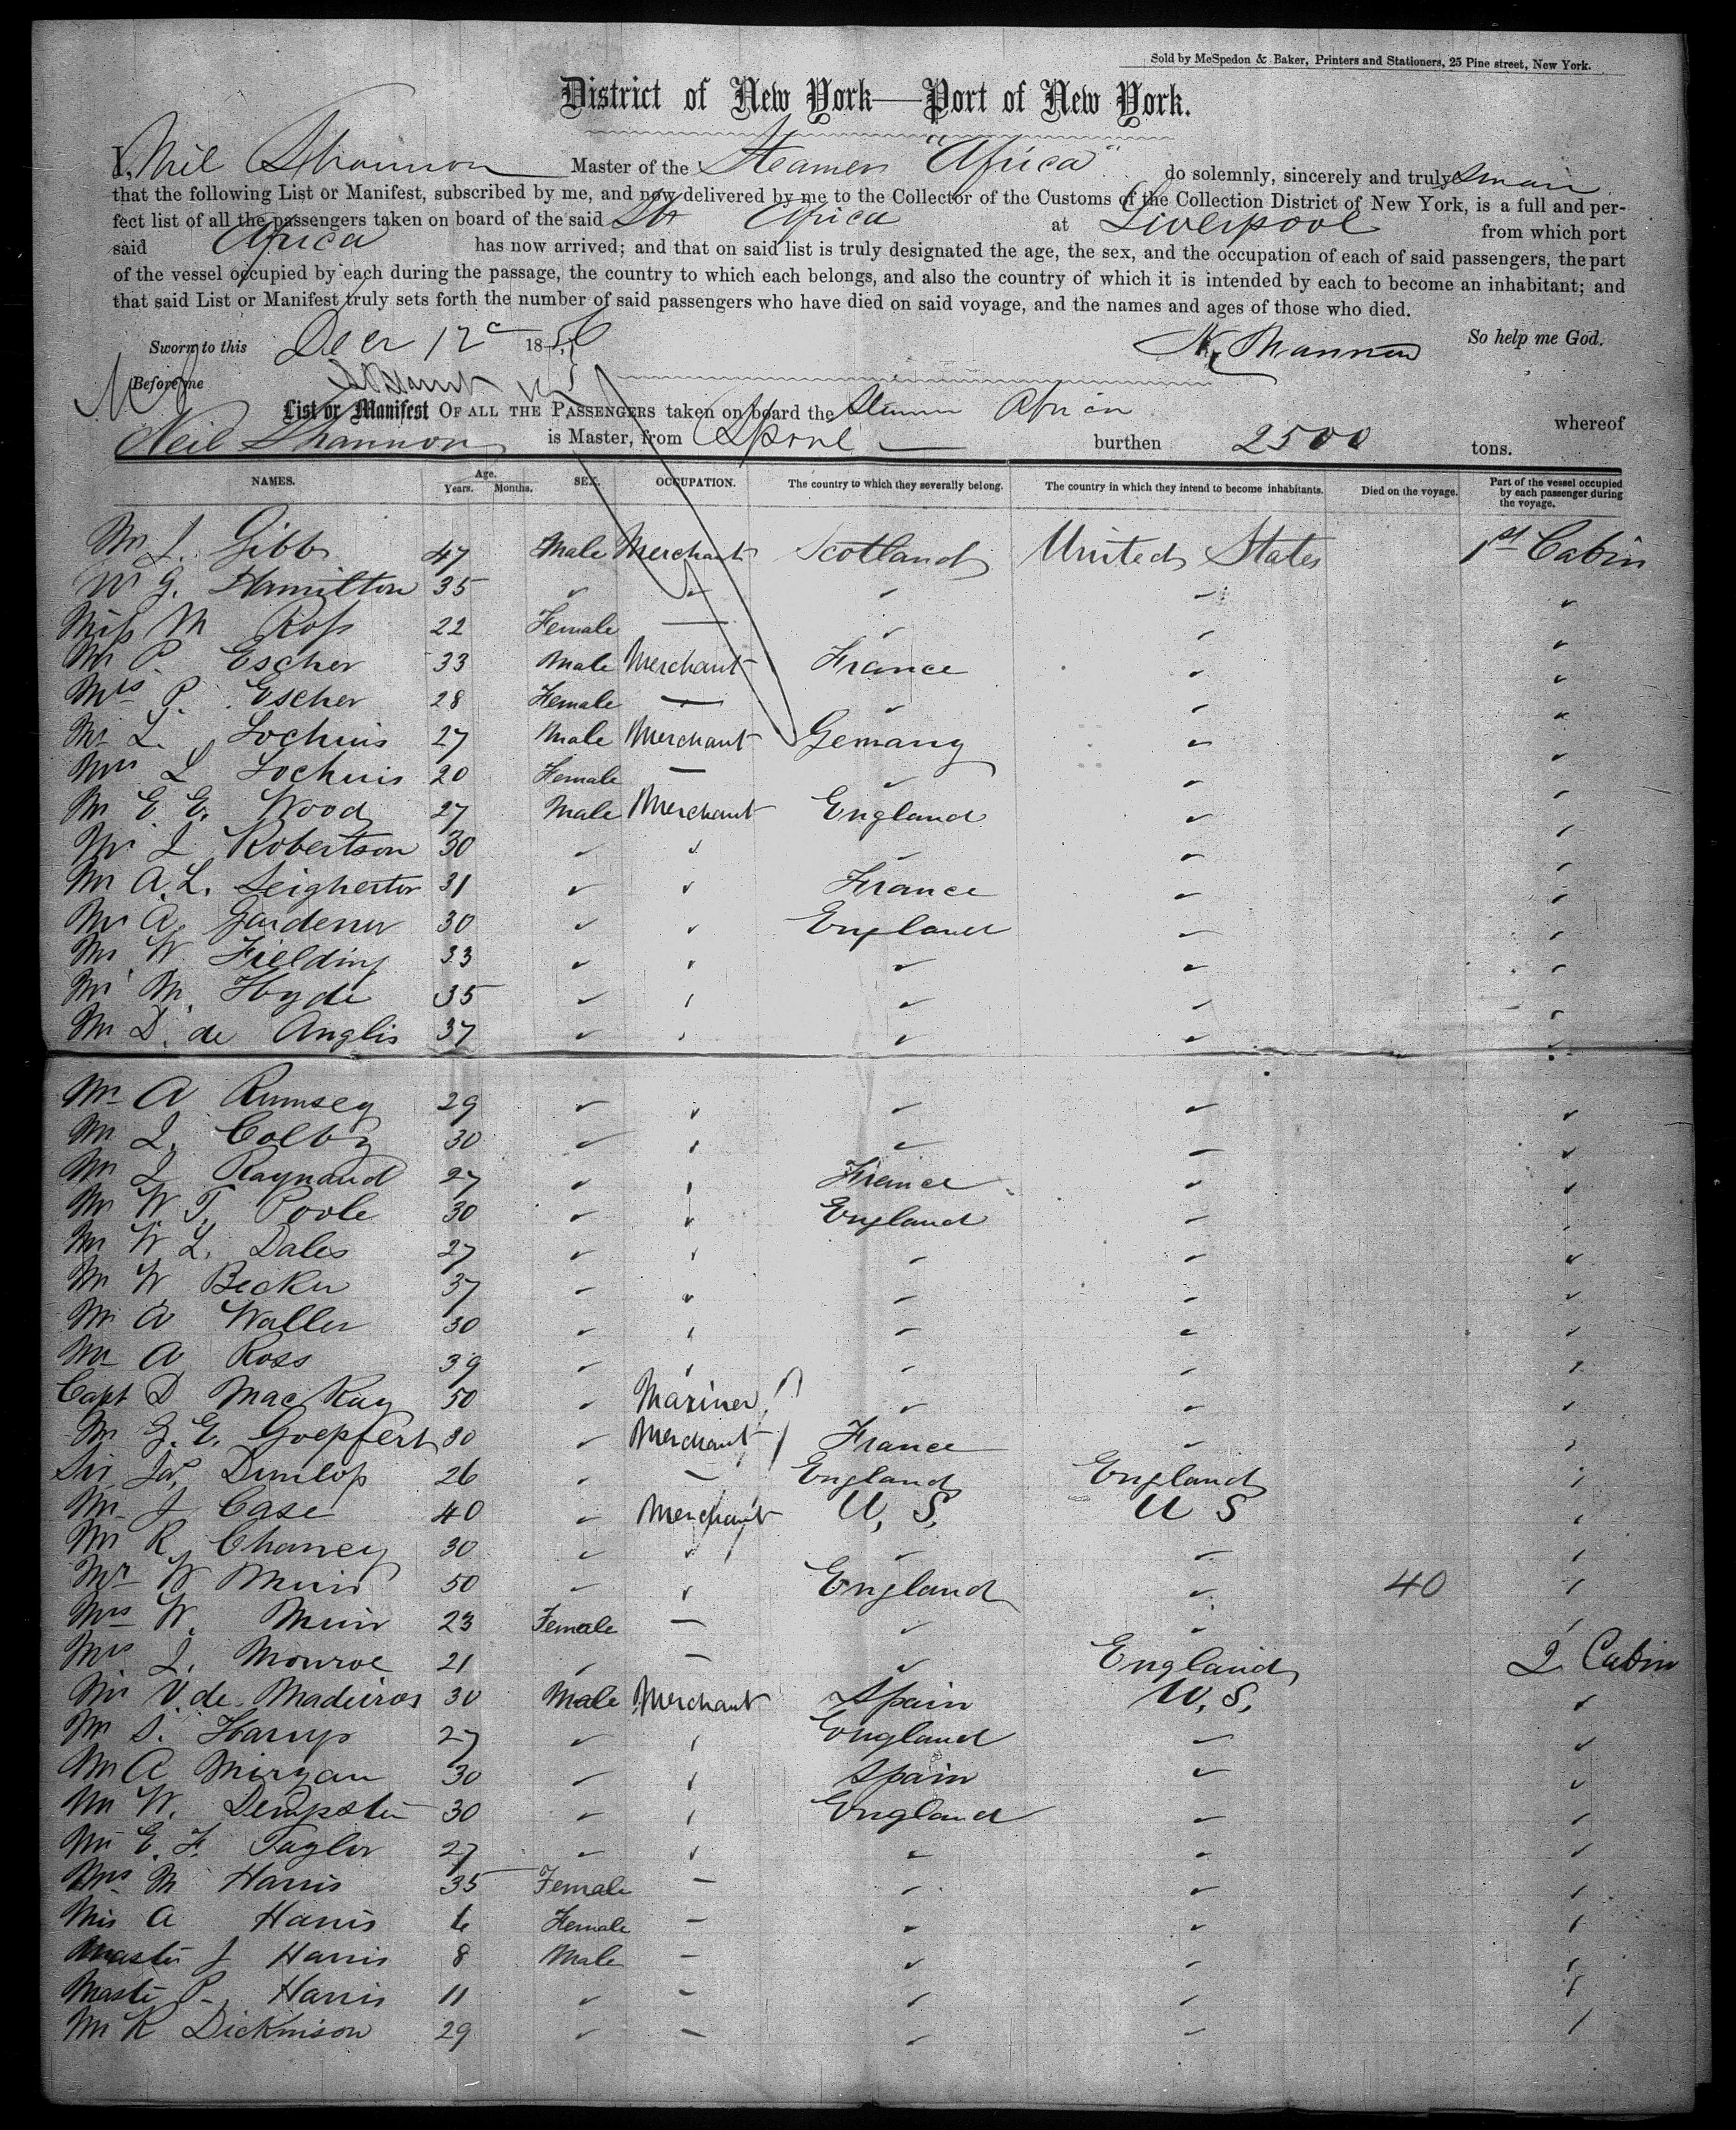 Sold by McSpedon & Baker, Printers and Stationers, 25 Pine street, New York.
District of New York—Port of New York.
I, Neil Shannon Master of the Steamer "Africa" do solemnly, sincerely and truly swear
that the following List or Manifest, subscribed by me, and now delivered by me to the Collector of the Customs of the Collection District of New York, is a full and per-
fect list of all the passengers taken on board of the said Str Africa at Liverpool from which port
said Africa has now arrived; and that on said list is truly designated the age, the sex, and the occupation of each of said passengers, the part
of the vessel occupied by each during the passage, the country to which each belongs, and also the country of which it is intended by each to become an inhabitant; and
that said List or Manifest truly sets forth the number of said passengers who have died on said voyage, and the names and ages of those who died.
Sworn to this Decr 12 1856 N. Shannon So help me God.
Before me
List or Manifest OF ALL THE PASSENGERS taken on board the Steamer Africa whereof
Neil Shannon is Master, from Lpool burthen 2500 tons.
NAMES. Age. Years. Months. SEX. OCCUPATION. The country to which they severally belong. The country in which they intend to become inhabitants. Died on the voyage. Part of the vessel occupied by each passenger during the voyage.
Mr J. Gibb 47 Male Merchant Scotland United States 1st Cabin
W G. Hamilton 35 " " " " "
Miss M Ross 22 Female — " " "
Mr P. Escher 33 Male Merchant France " "
Mrs P. Escher 28 Female — " " "
Mr L. Lochuis 27 Male Merchant Gemany " "
Mrs L Lochuis 20 Female — " " "
Mr E E. Wood 27 Male Merchant England " "
Mr J Robertson 30 " " " " "
Mr A. L. Seighertor 31 " " France " "
Mr A. Gardener 30 " " England " "
Mr W. Fielding 33 " " " " "
Mr M. Hyde 35 " " " " "
Mr D. de Anglis 37 " " " " "
Mr A Rumsey 29 " " " " "
Mr J. Colby 30 " " " " "
Mr J Raynaud 27 " " France " "
Mr W T. Poole 30 " " England " "
Mr W L. Dales 27 " " " " "
Mr W Becker 37 " " " " "
Mr A Waller 30 " " " " "
Mr A Ross 39 " " " " "
Capt D MacKay 50 " Mariner " " "
Mr G. E. Goepfert 30 " Merchant France " "
Sir Jas. Dunlop 26 " — England England "
Mr J Case 40 " Merchant U. S. U S "
Mr R Chaney 30 " " " " "
Mr W Muir 50 " " England " 40 "
Mrs W. Muir 23 Female — " " "
Mrs J. Monroe 21 " — " England 2 Cabin
Mr V de Madeiros 30 Male Merchant Spain U. S. "
Mr S. Harrys 27 " " England " "
Mr A Miryan 30 " " Spain " "
Mr W. Dempster 30 " " England " "
Mr E. F. Taylor 27 " " " " "
Mrs M Harris 35 Female — " " "
Mis A Harris 6 Female — " " "
Master J Harris 8 Male — " " "
Maste P. Harris 11 " — " " "
Mr R Dickinson 29 " — " " "